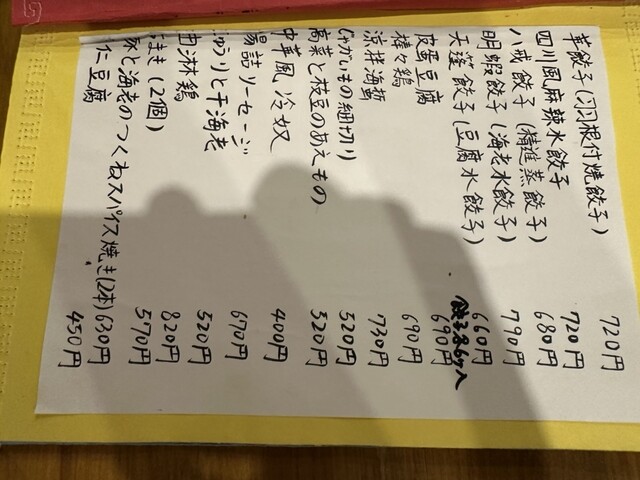 羊餃子(羽根付焼餃子) 720円
四川風麻辣水餃子 720円
八戒餃子(精進蒸餃子) 680円
明蝦餃子(海老水餃子) 790円
天蓬餃子(豆腐水餃子) 660円
餃子各6ヶ入
皮蛋豆腐 690円
棒々鶏 690円
涼拌海蜇 730円
じゃがいもの細切り 520円
高菜と枝豆のあえもの 520円
中華風冷奴 400円
腸詰ソーセージ 670円
ゅうりと干海老 520円
油淋鶏 820円
まき(2個) 570円
豚と海老のつくねスパイス焼き(2本) 630円
仁豆腐 450円